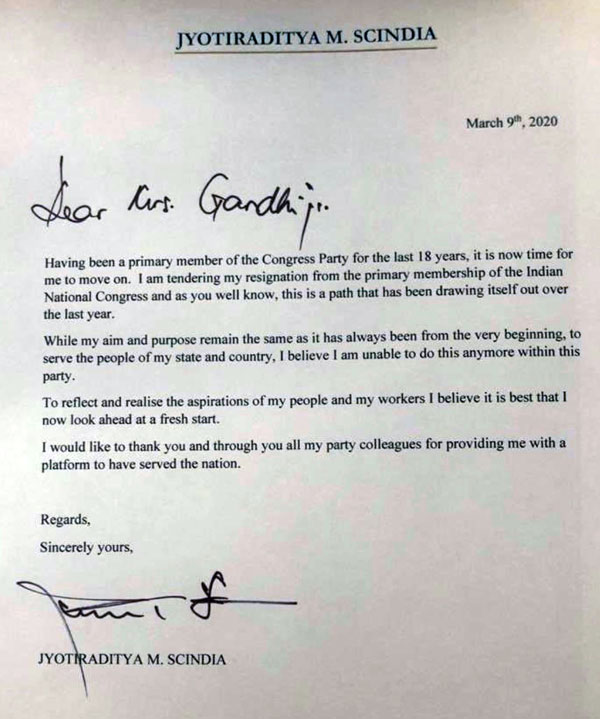 JYOTIRADITYA M. SCINDIA
March 9th, 2020
Dear Mrs. Gandhi-ji.
Having been a primary member of the Congress Party for the last 18 years, it is now time for
me to move on. I am tendering my resignation from the primary membership of the Indian
National Congress and as you well know, this is a path that has been drawing itself out over
the last year.
While my aim and purpose remain the same as it has always been from the very beginning, to
serve the people of my state and country, I believe I am unable to do this anymore within this
party.
To reflect and realise the aspirations of my people and my workers I believe it is best that I
now look ahead at a fresh start.
I would like to thank you and through you all my party colleagues for providing me with a
platform to have served the nation.
Regards,
Sincerely yours,
JYOTIRADITYA M. SCINDIA